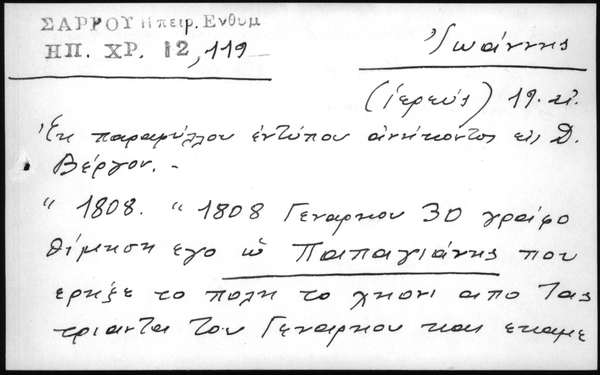 ΣΑΡΡΟΥ Ηπειρ. Ενθυμ
ΗΠ. ΧΡ. 12, 119
Ἰωάννης
(ἱερεύς) 19. αἰ.
Ἐκ παραφύλλου ἐντύπου ἀνήκοντος εἰς Δ.
Βέργον. -
" 1808. " 1808 Γεναρηου 30 γραφο
θίμηση εγο ὁ Παπαγιάνης που
ερηξε το πολη το χηονι απο Τας
τριαντα του Γεναρηου και εκαμε